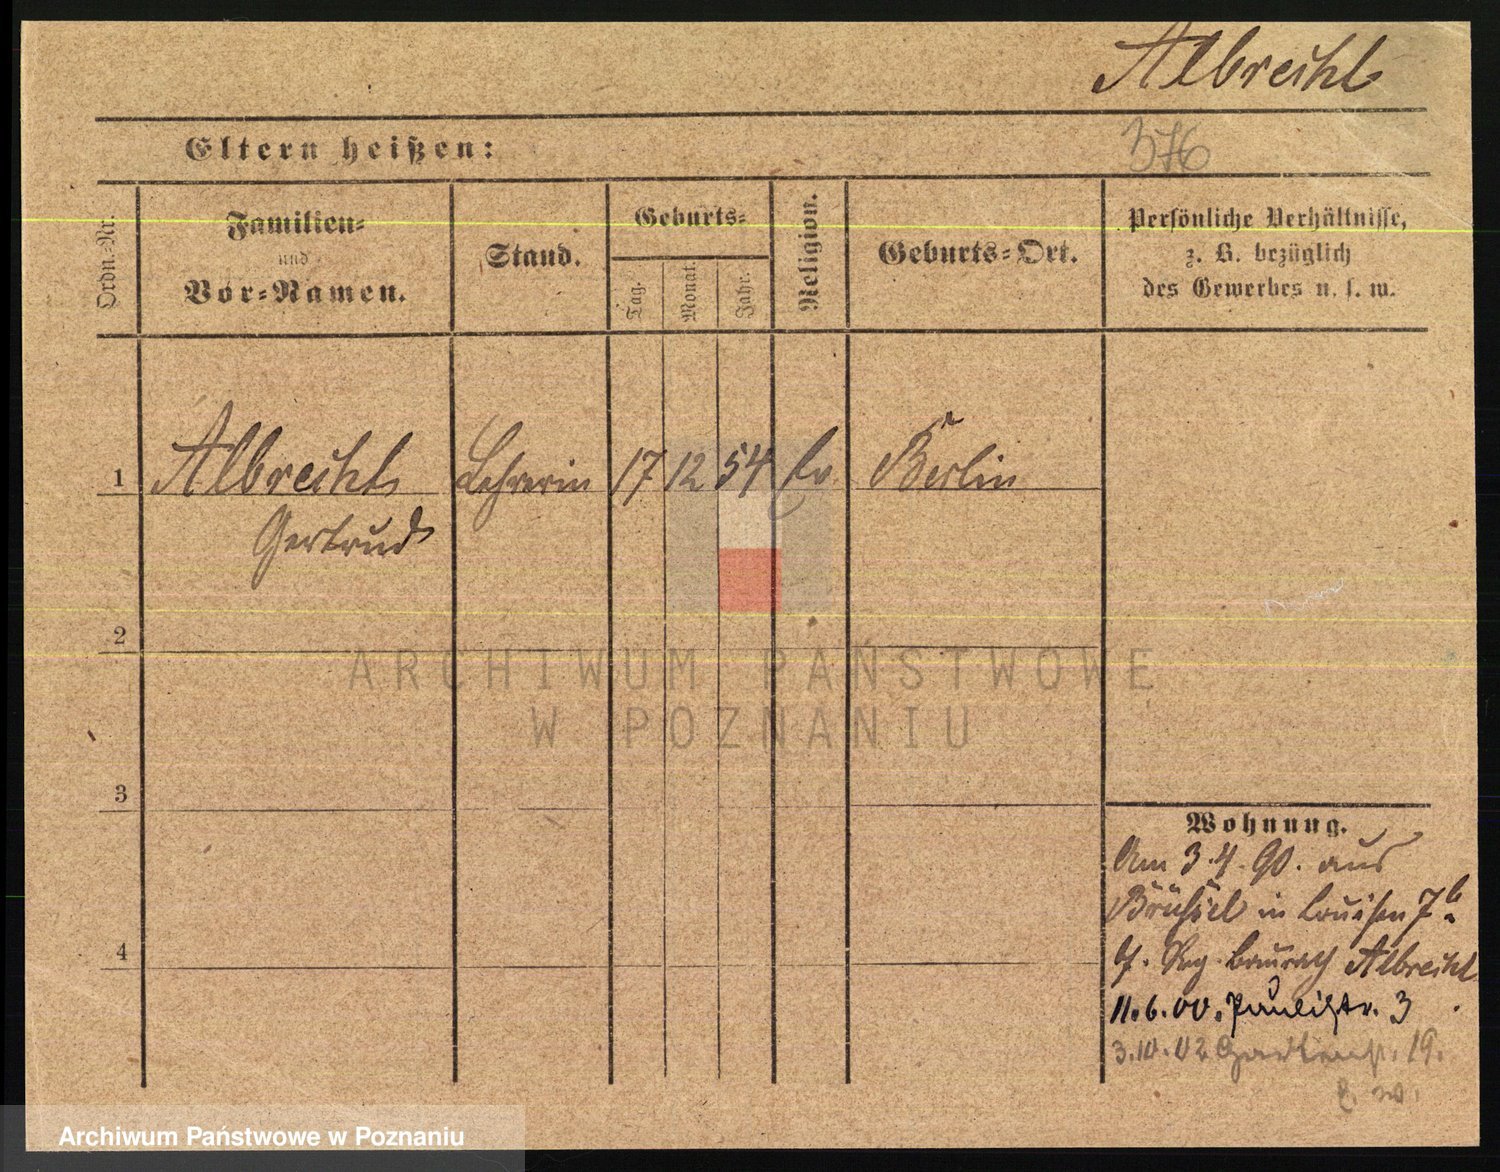 Albrecht
Eltern heißen:
376
Ordn.-Nr.
Familien-
und
Vor-Namen.
Stand.
Geburts-
Tag.
Monat.
Jahr.
Religion.
Geburts-Ort.
Persönliche Verhältnisse,
z. B. bezüglich
des Gewerbes u. s. w.
1 Albrecht Lehrerin 17 12 54 Ev Berlin
Gertrud
2
ARCHIWUM PAŃSTWOWE
W POZNANIU
3
Wohnung.
Am 3.4.90. aus
Brüssel in Louisen 7b
Reg. Baurath Albrecht
4
11.6.00. Paulistr. 3
3.10.02 Gartenstr. 19.
Archiwum Państwowe w Poznaniu